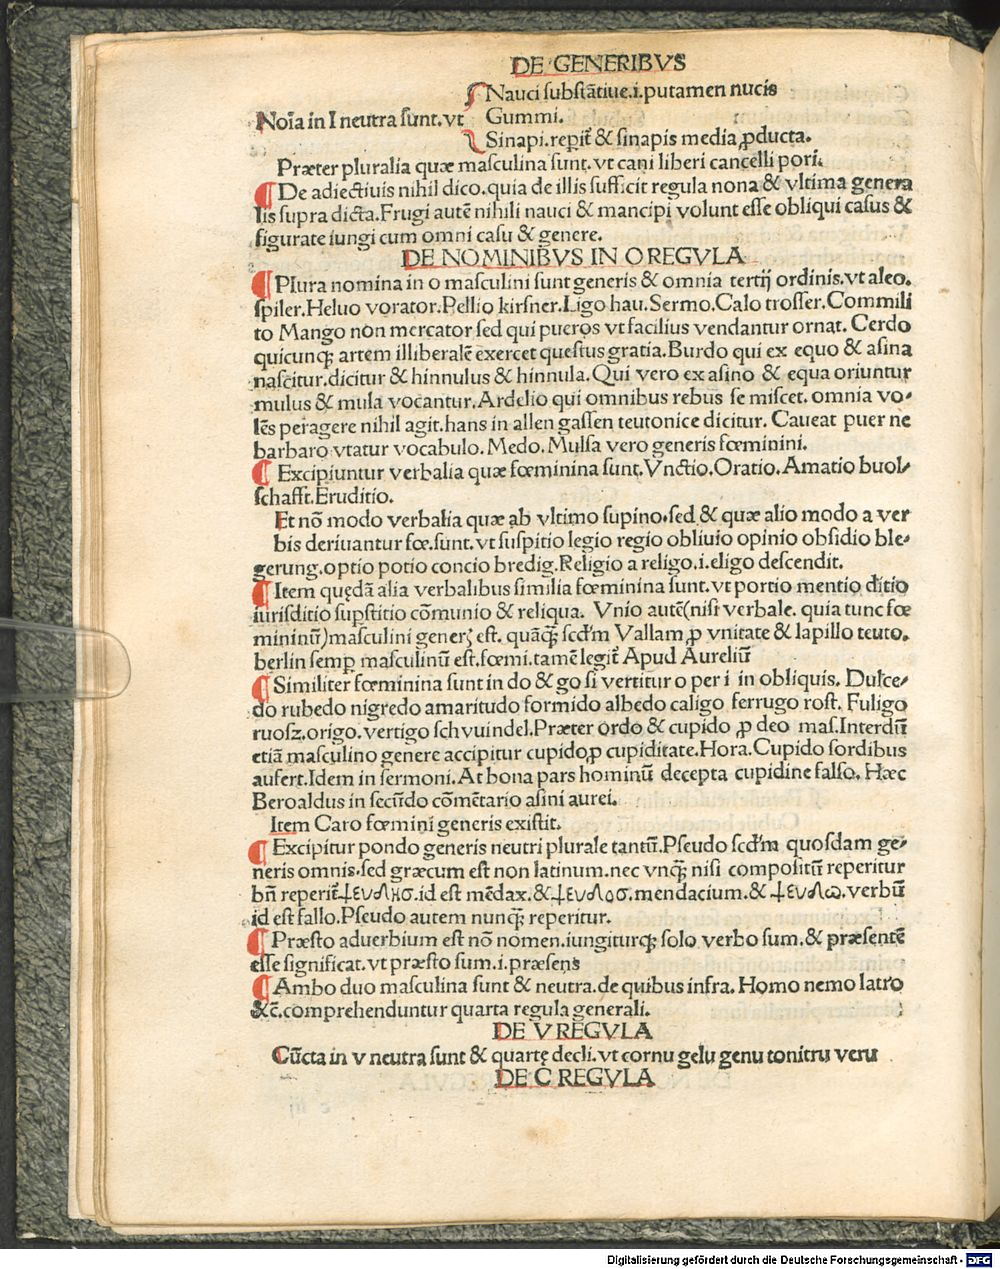 DE GENERIBVS
Nauci substātiue.i.putamen nucis
Noīa in I neutra sunt.vt Gummi.
Sinapi.reperit̄ & sinapis media ꝓducta.
Præter pluralia quæ masculina sunt. vt cani liberi cancelli pori.
¶ De adiectiuis nihil dico.quia de illis sufficit regula nona & vltima genera
lis supra dicta.Frugi autē nihili nauci & mancipi volunt esse obliqui casus &
figurate iungi cum omni casu & genere.
DE NOMINIBVS IN O REGVLA
¶ Plura nomina in o masculini sunt generis & omnia tertij ordinis.vt aleo.
spiler.Heluo vorator.Pellio kirsner.Ligo hau.Sermo.Calo trosser.Commili
to Mango non mercator sed qui pueros vt facilius vendantur ornat. Cerdo
quicunqꝫ artem illiberalē exercet questus gratia.Burdo qui ex equo & asina
nascitur.dicitur & hinnulus & hinnula.Qui vero ex asino & equa oriuntur
mulus & mula vocantur.Ardelio qui omnibus rebus se miscet. omnia vo⸗
lēs peragere nihil agit.hans in allen gassen teutonice dicitur. Caueat puer ne
barbaro vtatur vocabulo. Medo. Mulsa vero generis fœminini.
¶ Excipiuntur verbalia quæ fœminina sunt. Vnctio.Oratio.Amatio buol⸗
schafft.Eruditio.
Et nō modo verbalia quæ ab vltimo supino.sed & quæ alio modo a ver
bis deriuantur fœ.sunt.vt suspitio legio regio obliuio opinio obsidio ble⸗
gerung.optio potio concio bredig.Religio a religo.i.eligo descendit.
¶ Item quędā alia verbalibus similia fœminina sunt.vt portio mentio ditio
iurisditio supstitio cōmunio & reliqua. Vnio autē(nisi verbale. quia tunc fœ
mininū)masculini generꝭ est. quāqꝫ scd̄m Vallam ꝓ vnitate & lapillo teuto.
berlin semp̱ masculinū est.fœmi.tamē legit̄ Apud Aureliū
¶ Similiter fœminina sunt in do & go si vertitur o per i in obliquis. Dulce⸗
do rubedo nigredo amaritudo formido albedo caligo ferrugo rost. Fuligo
ruosz.origo.vertigo schvuindel.Præter ordo & cupido ꝓ deo mas.Interdū
etiā masculino genere accipitur cupido,ꝓ cupiditate.Hora.Cupido sordibus
aufert.Idem in sermoni.At bona pars hominū decepta cupidine falso. Hæc
Beroaldus in secūdo cōmētario asini aurei.
Item Caro fœmini generis existit.
¶ Excipitur pondo generis neutri plurale tantū.Pseudo scd̄m quosdam ge⸗
neris omnis.sed græcum est non latinum.nec vnqꝫ nisi compositū reperitur
bn̄ reperit̄ ψευδησ.id est mēdax.& ψευδοσ.mendacium.& ψευδω.verbū
id est fallo.Pseudo autem nunqꝫ reperitur.
¶ Præsto aduerbium est nō nomen.iungiturqꝫ solo verbo sum.& præsentē
esse significat.vt præsto sum.i.præsens
¶ Ambo duo masculina sunt & neutra.de quibus infra. Homo nemo latro
&c̄.comprehenduntur quarta regula generali.
DE V REGVLA
Cūcta in v neutra sunt & quartę decli.vt cornu gelu genu tonitru veru
DE C REGVLA
Digitalisierung gefördert durch die Deutsche Forschungsgemeinschaft - DFG